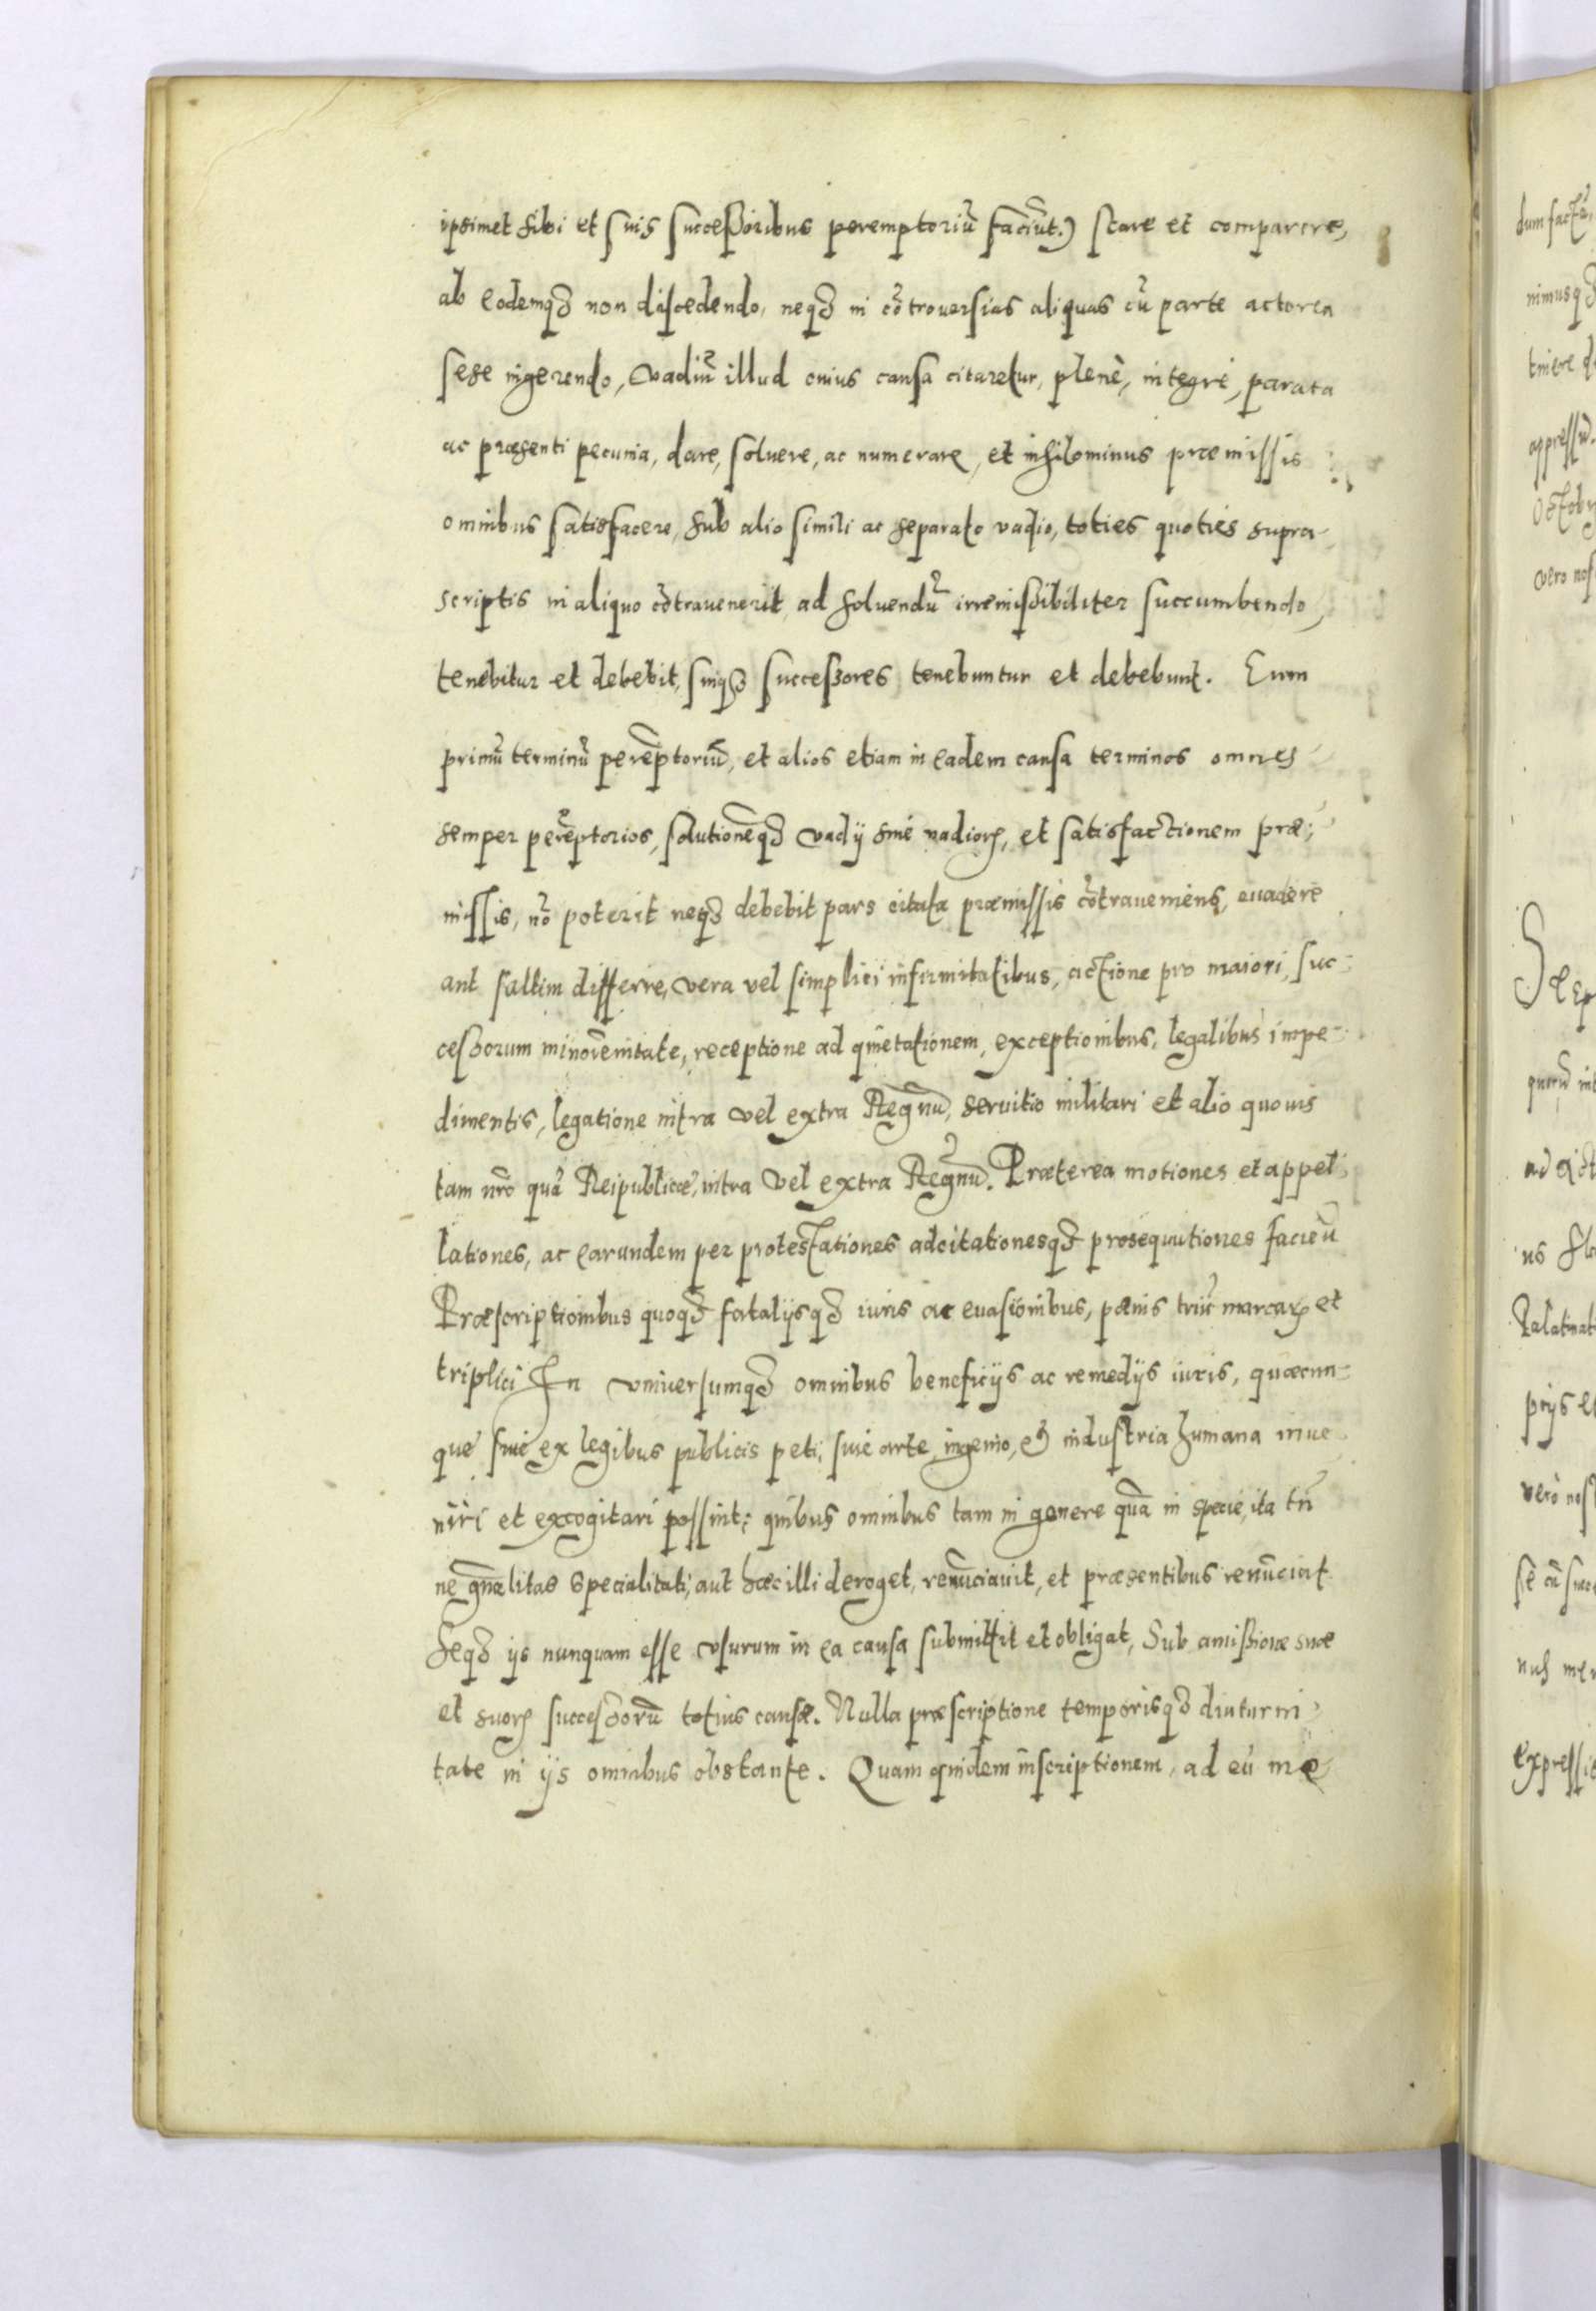 ipsimet sibi et suis successoribus peremptoriũ faciũt.) stare et comparere,
ab eodemq3 non discedendo, neq3 in cõtroversias aliquas cũ parte actorea
sese ingerendo, vadiũ illud cuius causa citaretur, plenè, integrè, parata
ac præsenti pecunia, dare, soluere, ac numerare, et nihilominus præmissis
omnibus satisfacere, sub alio simili ac separato vadio, toties quoties supra
scriptis in aliquo cõtrauenerit, ad soluendũ irremissibiliter succumbendo,
tenebitur et debebit, suiq3 successores tenebuntur et debebunt. Eum
primũ terminũ perẽptoriũ, et alios etiam in eadem causa terminos omnes
semper perẽptorios, solutionẽq3 vadij siue vadiorꝫ, et satisfactionem præ-
missis, nõ poterit neq3 debebit pars citata præmissis cõtraueniens, euadere
aut saltim differre, vera vel simplici infirmitatibus, actione pro maiori, suc-
cessorum minorẽnitate, receptione ad quietationem, exceptionibus, legalibus impe-
dimentis, legatione intra vel extra Regnũ, seruitio militari et alio quouis
tam nr̃o quã Reipublicæ, intra vel extra Regnũ. Præterea motiones et appel-
lationes, ac earundem per protestationes adcitationesq3 prosequutiones facieñ
Præscriptionibus quoq3 fatalijsq3 iuris ac euasionibus, pœnis triũ marcarꝫ et
triplici In vniuersumq3 omnibus beneficijs ac remedijs iuris, quæcun-
que siue ex legibus publicis peti, siue arte, ingenio, & industria humana inue-
niri et excogitari possint; quibus omnibus tam in genere quã in specie, ita tñ
ne gñalitas specialitati, aut hæc illi deroget, renũciauit, et præsentibus renũciat
seq3 ijs nunquam esse vsurum in ea causa submittit et obligat, Sub amissione suæ
et suorꝫ successorũ totius causæ. Nulla præscriptione temporisq3 diuturni-
tate in ijs omnibus obstante. Quam quidem inscriptionem, ad eũ mo-